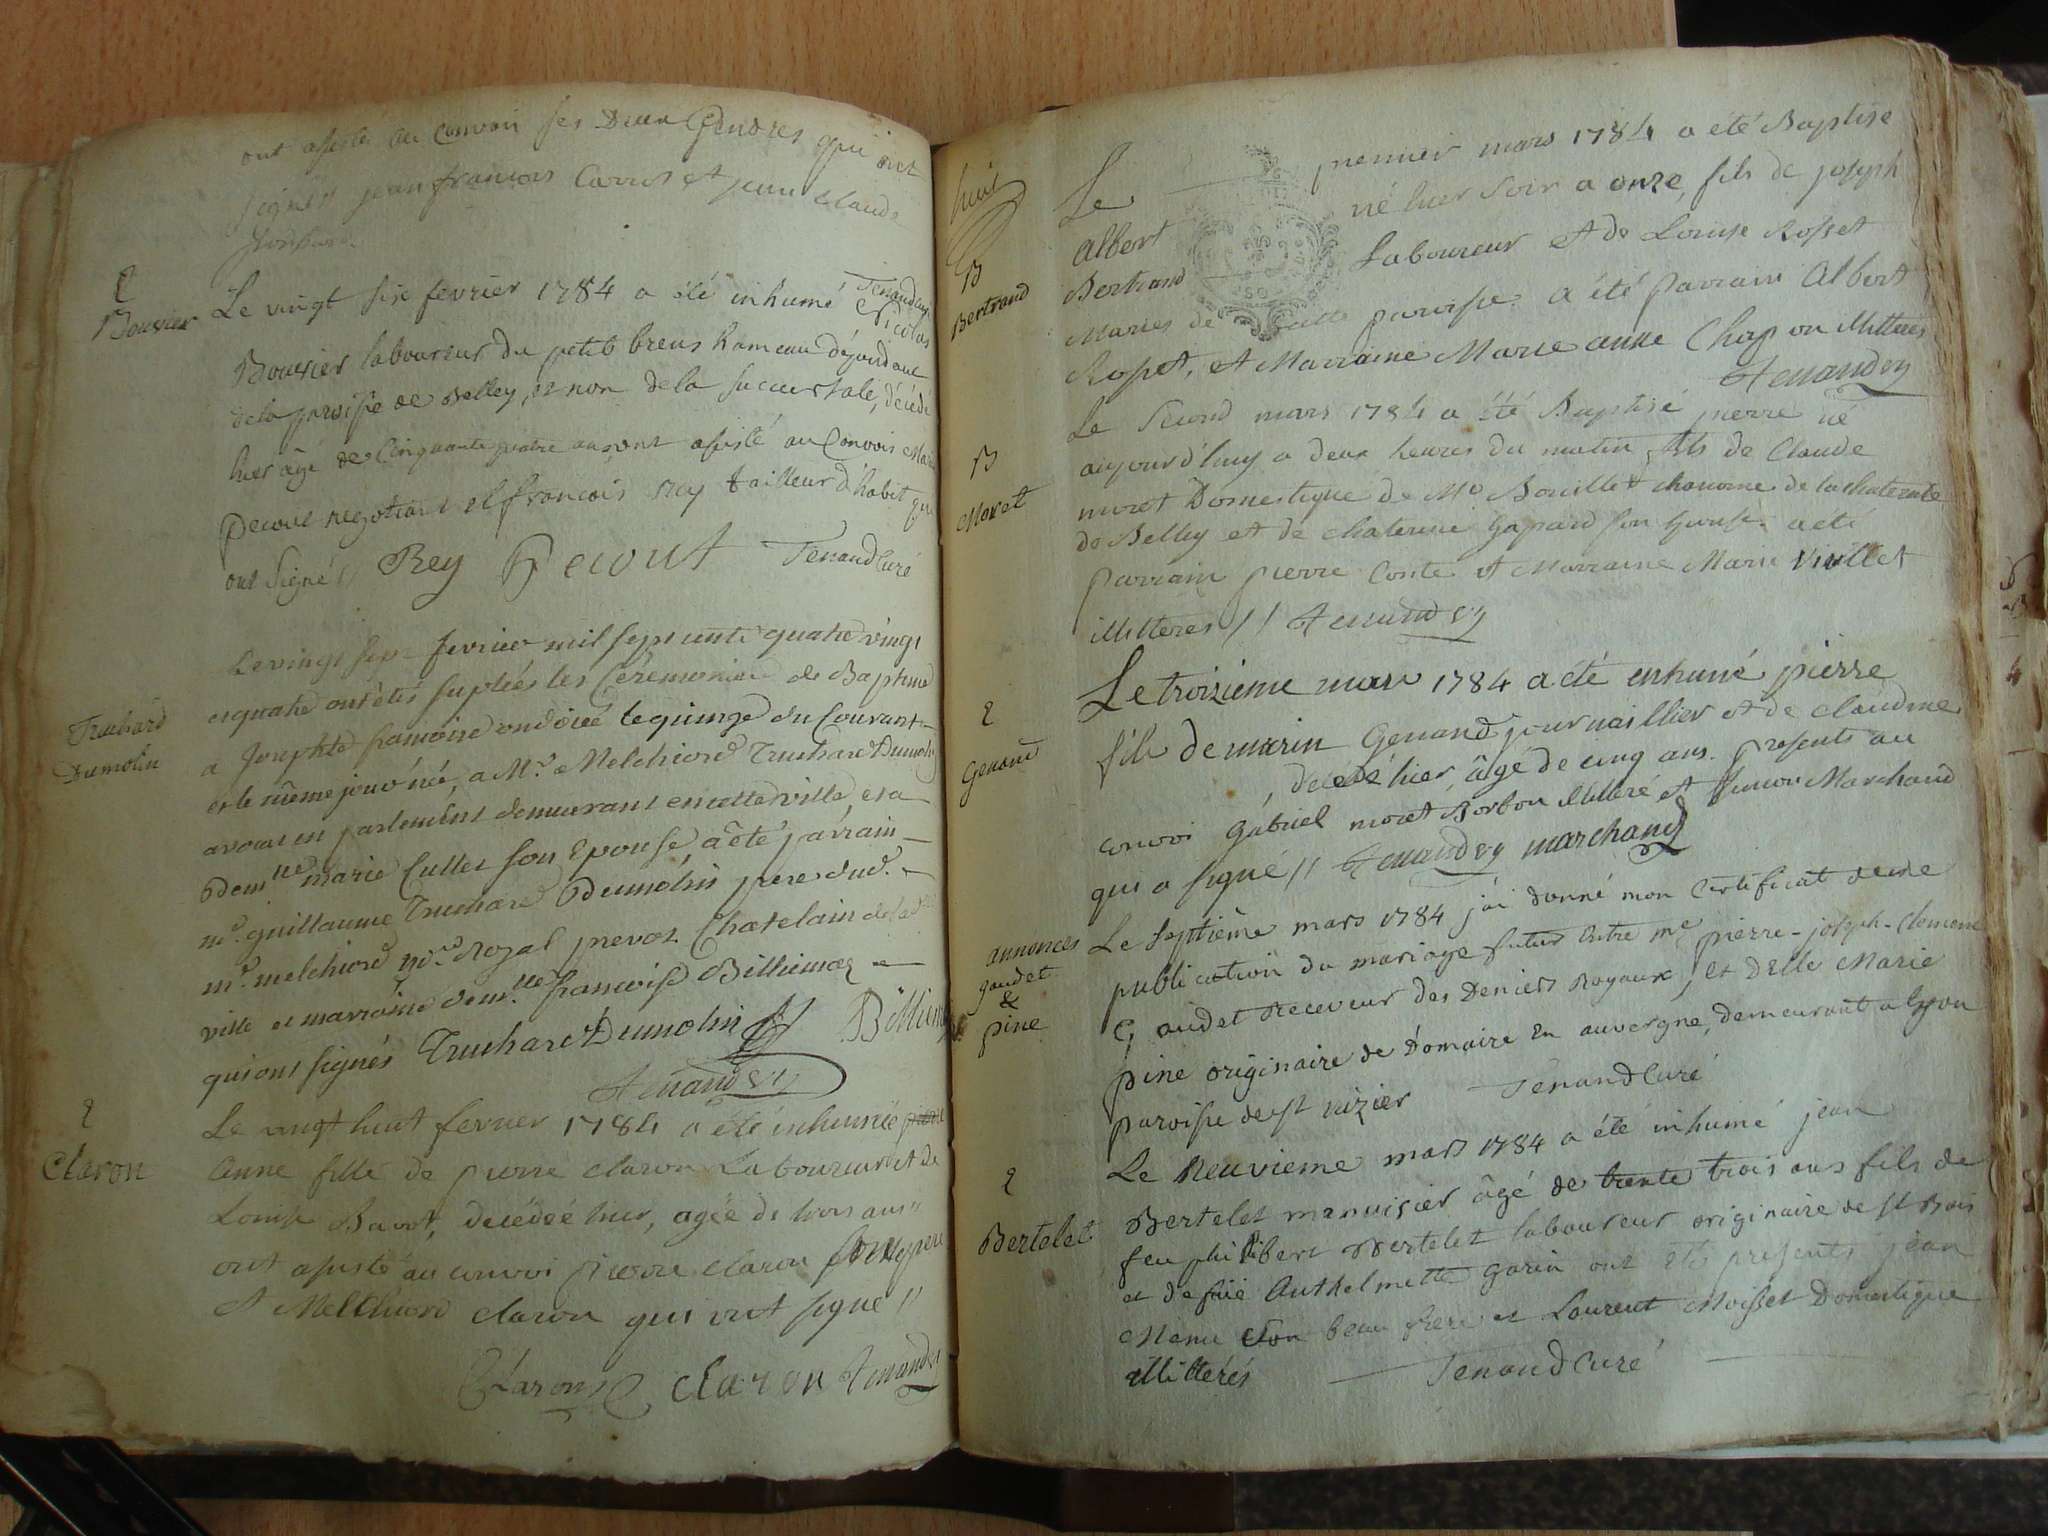 ont assisté au convoi ses deux gendres qui ont
signés jean francois Carrus et jean claude
Tenandcuré
2
Bouvier
Le vingt six février 1784 a été inhumé Nicolas
Bouvier laboureur du petit brens hameau dépendant
de la paroisse de Belley, et non de la succursale, décédé
hier âgé de Cinquante quatre ans, ont assisté au Convois Marin
pecout negotiant et francois Rey tailleur d'habit qui
ont signés Rey Pecout Tenand Curé
Truchard
Dumolin
Le vingt sept fevrier mil sept cents quatre vingt
et quatre ont étés suplées les Cérémonies de Baptême
a Josephte francoise ondoiée le quinze du Courant
et le même jour née, a Mr. Melchiord Truchard Dumolin
avocat en parlement demeurant en cette ville, et a
Demlle marie Cullet son Epouse a été parrain
mr. guillaume Truchard Dumolin pere dud.
mr. melchiord nre. Royal prevot Chatelain de lad.
ville et marraine demlle francoise Billiemaz
qui ont signés Truchard Dumolin Billiem
Tenand vy
2
Claron
Le vingt huit fevrier 1784 a été inhumée
Anne fille de pierre claron Laboureur et de
Louise Bavot, decédée hier, agée de trois ans
ont assisté au convoi pierre claron son pere
et Melchiord claron qui ont signé //
Claron claron Tenand vy
huit
B
Bertrand
Le premier mars 1784 a été Baptisé
Albert né hier soir a onze, fils de joseph
Bertrand Laboureur et de Louise Rosset
Mariés de cette paroisse a été parrain Albert
Rosset, et Marraine Marie anne Chapon illitteres
Tenand vy
B
Moret
Le second mars 1784 a été Baptisé pierre né
aujourd'huy a deux heures du matin fils de Claude
moret Domestique de Mr Bouillet chanoine de la chatedrale
de Belley et de chaterine Gapard son Epouse a été
parrain pierre Conte et Marraine Marie Viollet
illitteres // Tenand vy
2
Genand
Le troizieme mars 1784 a été enhumé pierre
fils de marin Genand journaillier et de claudine
, decédé hier, âgé de cinq ans. presents au
convoi Gabriel moret Borbon illitéré et Simon Marchand
qui a signé // Tenand vy marchand
annonces
gaudet
&
pine
Le septième mars 1784 j'ai donné mon Certificat de une
publication du mariage futur entre me pierre-joseph-clement
Gaudet Receveur des Deniers Royaux, et Delle Marie
pine originaire de Domaire en auvergne, demeurant a lyon
paroisse de st nizier Tenand Curé
2
Bertelet
Le Neuvieme mars 1784 a été inhumé jean
Bertelet menuisier âgé de trente trois ans fils de
feu philibert Bertelet laboureur originaire de st Bois
et de feüe Anthelmette Garin ont été presents jean
Menu son beau frere et Laurent Moisset Domestique
illitterés Tenand Curé